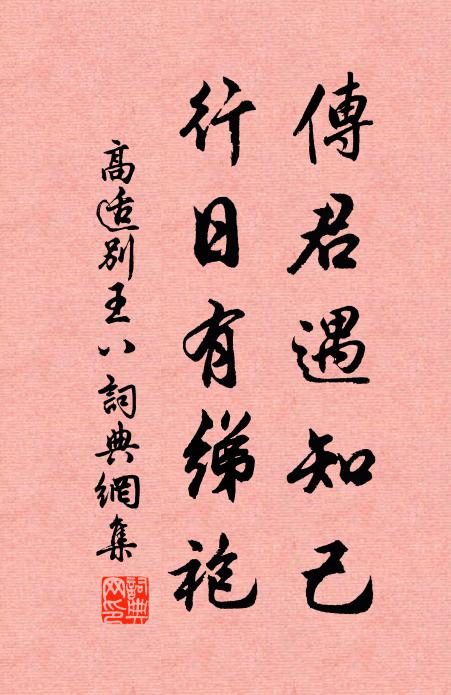 傳君遇知己
行日有綈袍
高適別王八詞典網集
詞典
网